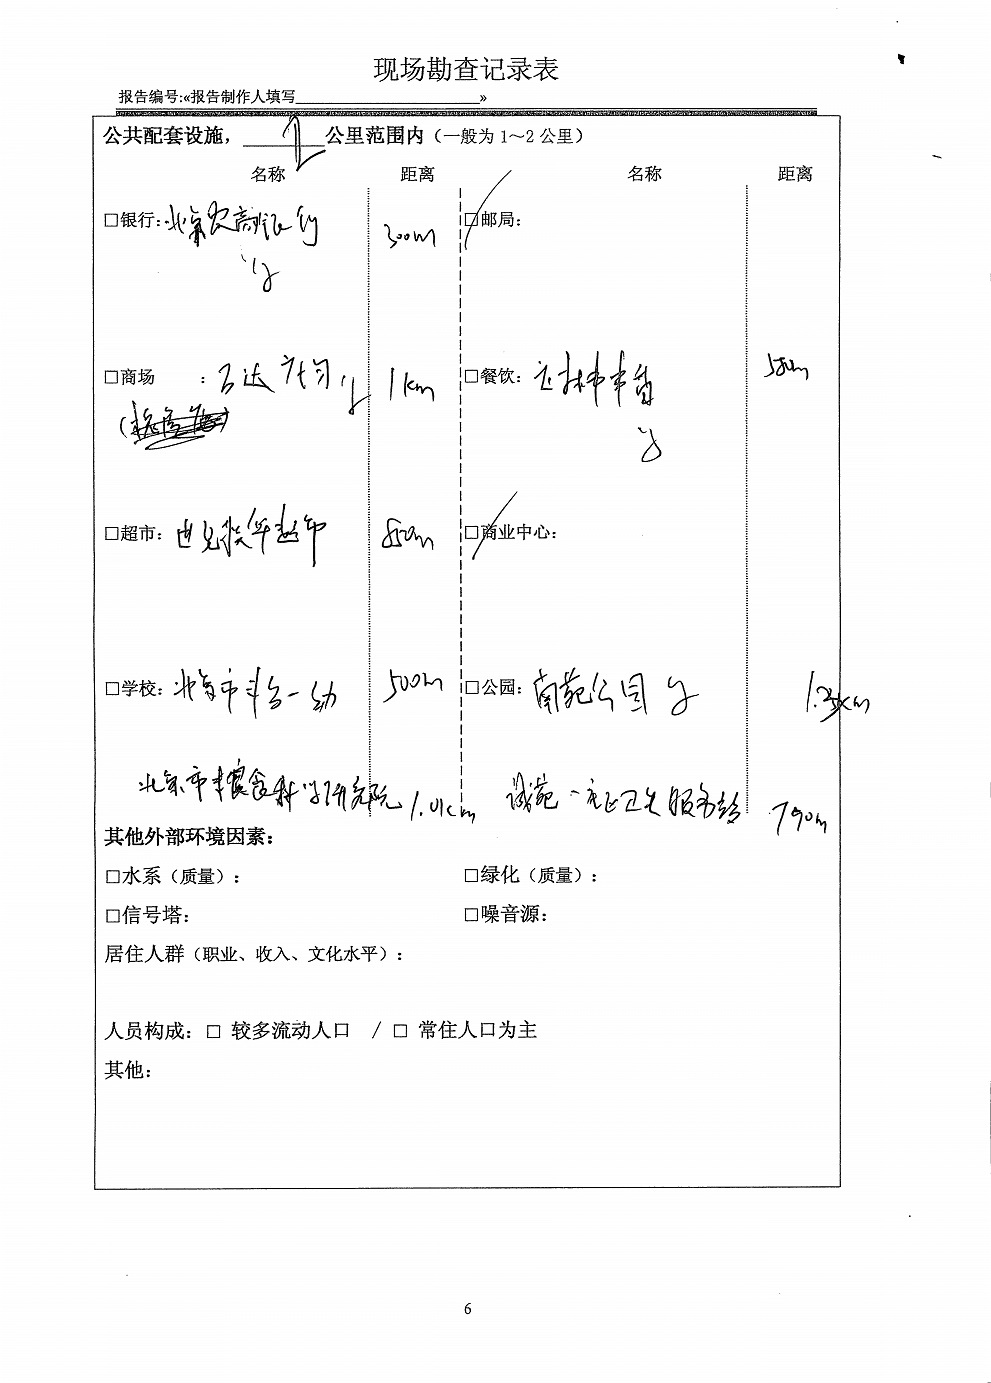 现场勘查记录表
报告编号:«报告制作人填写____________________»
公共配套设施，________公里范围内（一般为1～2公里）
名称 距离 名称 距离
□银行：北京农商银行 300m □邮局：
□商场 ：万达广场 1km □餐饮：
□超市： 超市 850m □商业中心：
□学校：北京市丰台一幼 500m □公园：南苑公园
北京市粮食科学研究院 1.01km 卫生服务站 790m
其他外部环境因素：
□水系（质量）： □绿化（质量）：
□信号塔： □噪音源：
居住人群（职业、收入、文化水平）：
人员构成：□ 较多流动人口 / □ 常住人口为主
其他：
6